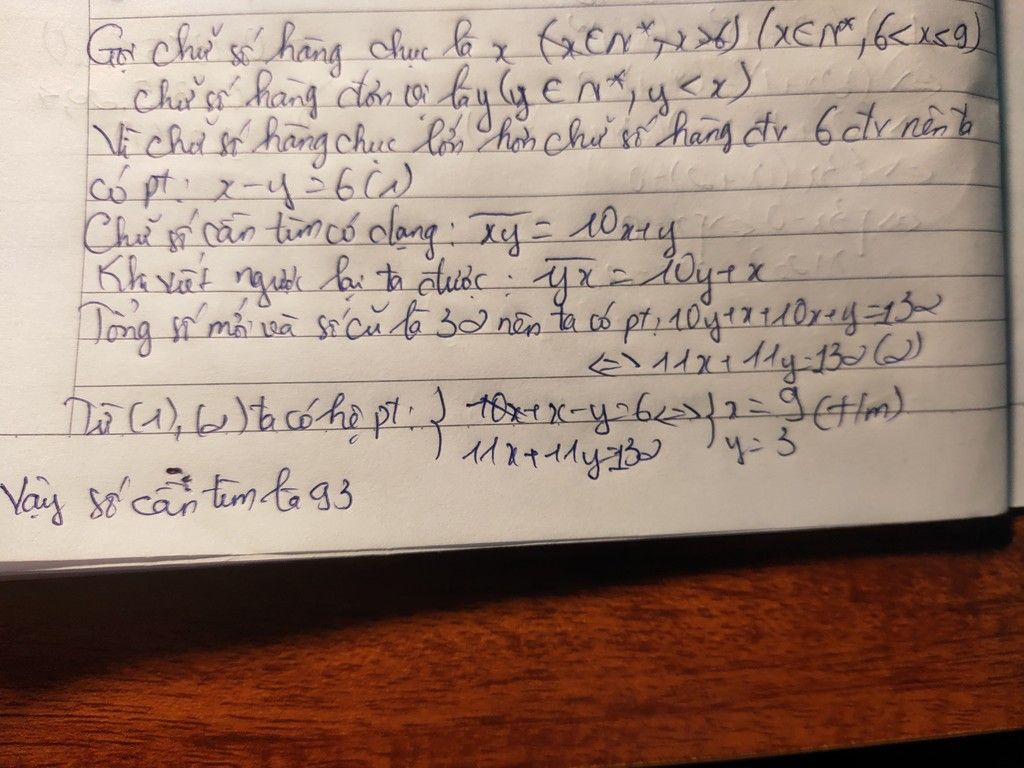 Gọi chữ số hàng chục là x (x ∈ N*, x > 6) (x ∈ N*, 6 < x < 9)
chữ số hàng đơn vị là y (y ∈ N*, y < x)
Vì chữ số hàng chục lớn hơn chữ số hàng đv 6 đv nên ta
có pt: x - y = 6 (1)
Chữ số cần tìm có dạng: \overline{xy} = 10x+y
Khi viết ngược lại ta được: \overline{yx} = 10y + x
Tổng số mới và số cũ là 32 nên ta có pt: 10y+x+10x+y=132
<=> 11x + 11y=132 (2)
Từ (1), (2) ta có hệ pt: } 10x+x-y=6 <=> } x = 9 (t/m)
11x+11y=132 y = 3
Vậy số cần tìm là 93